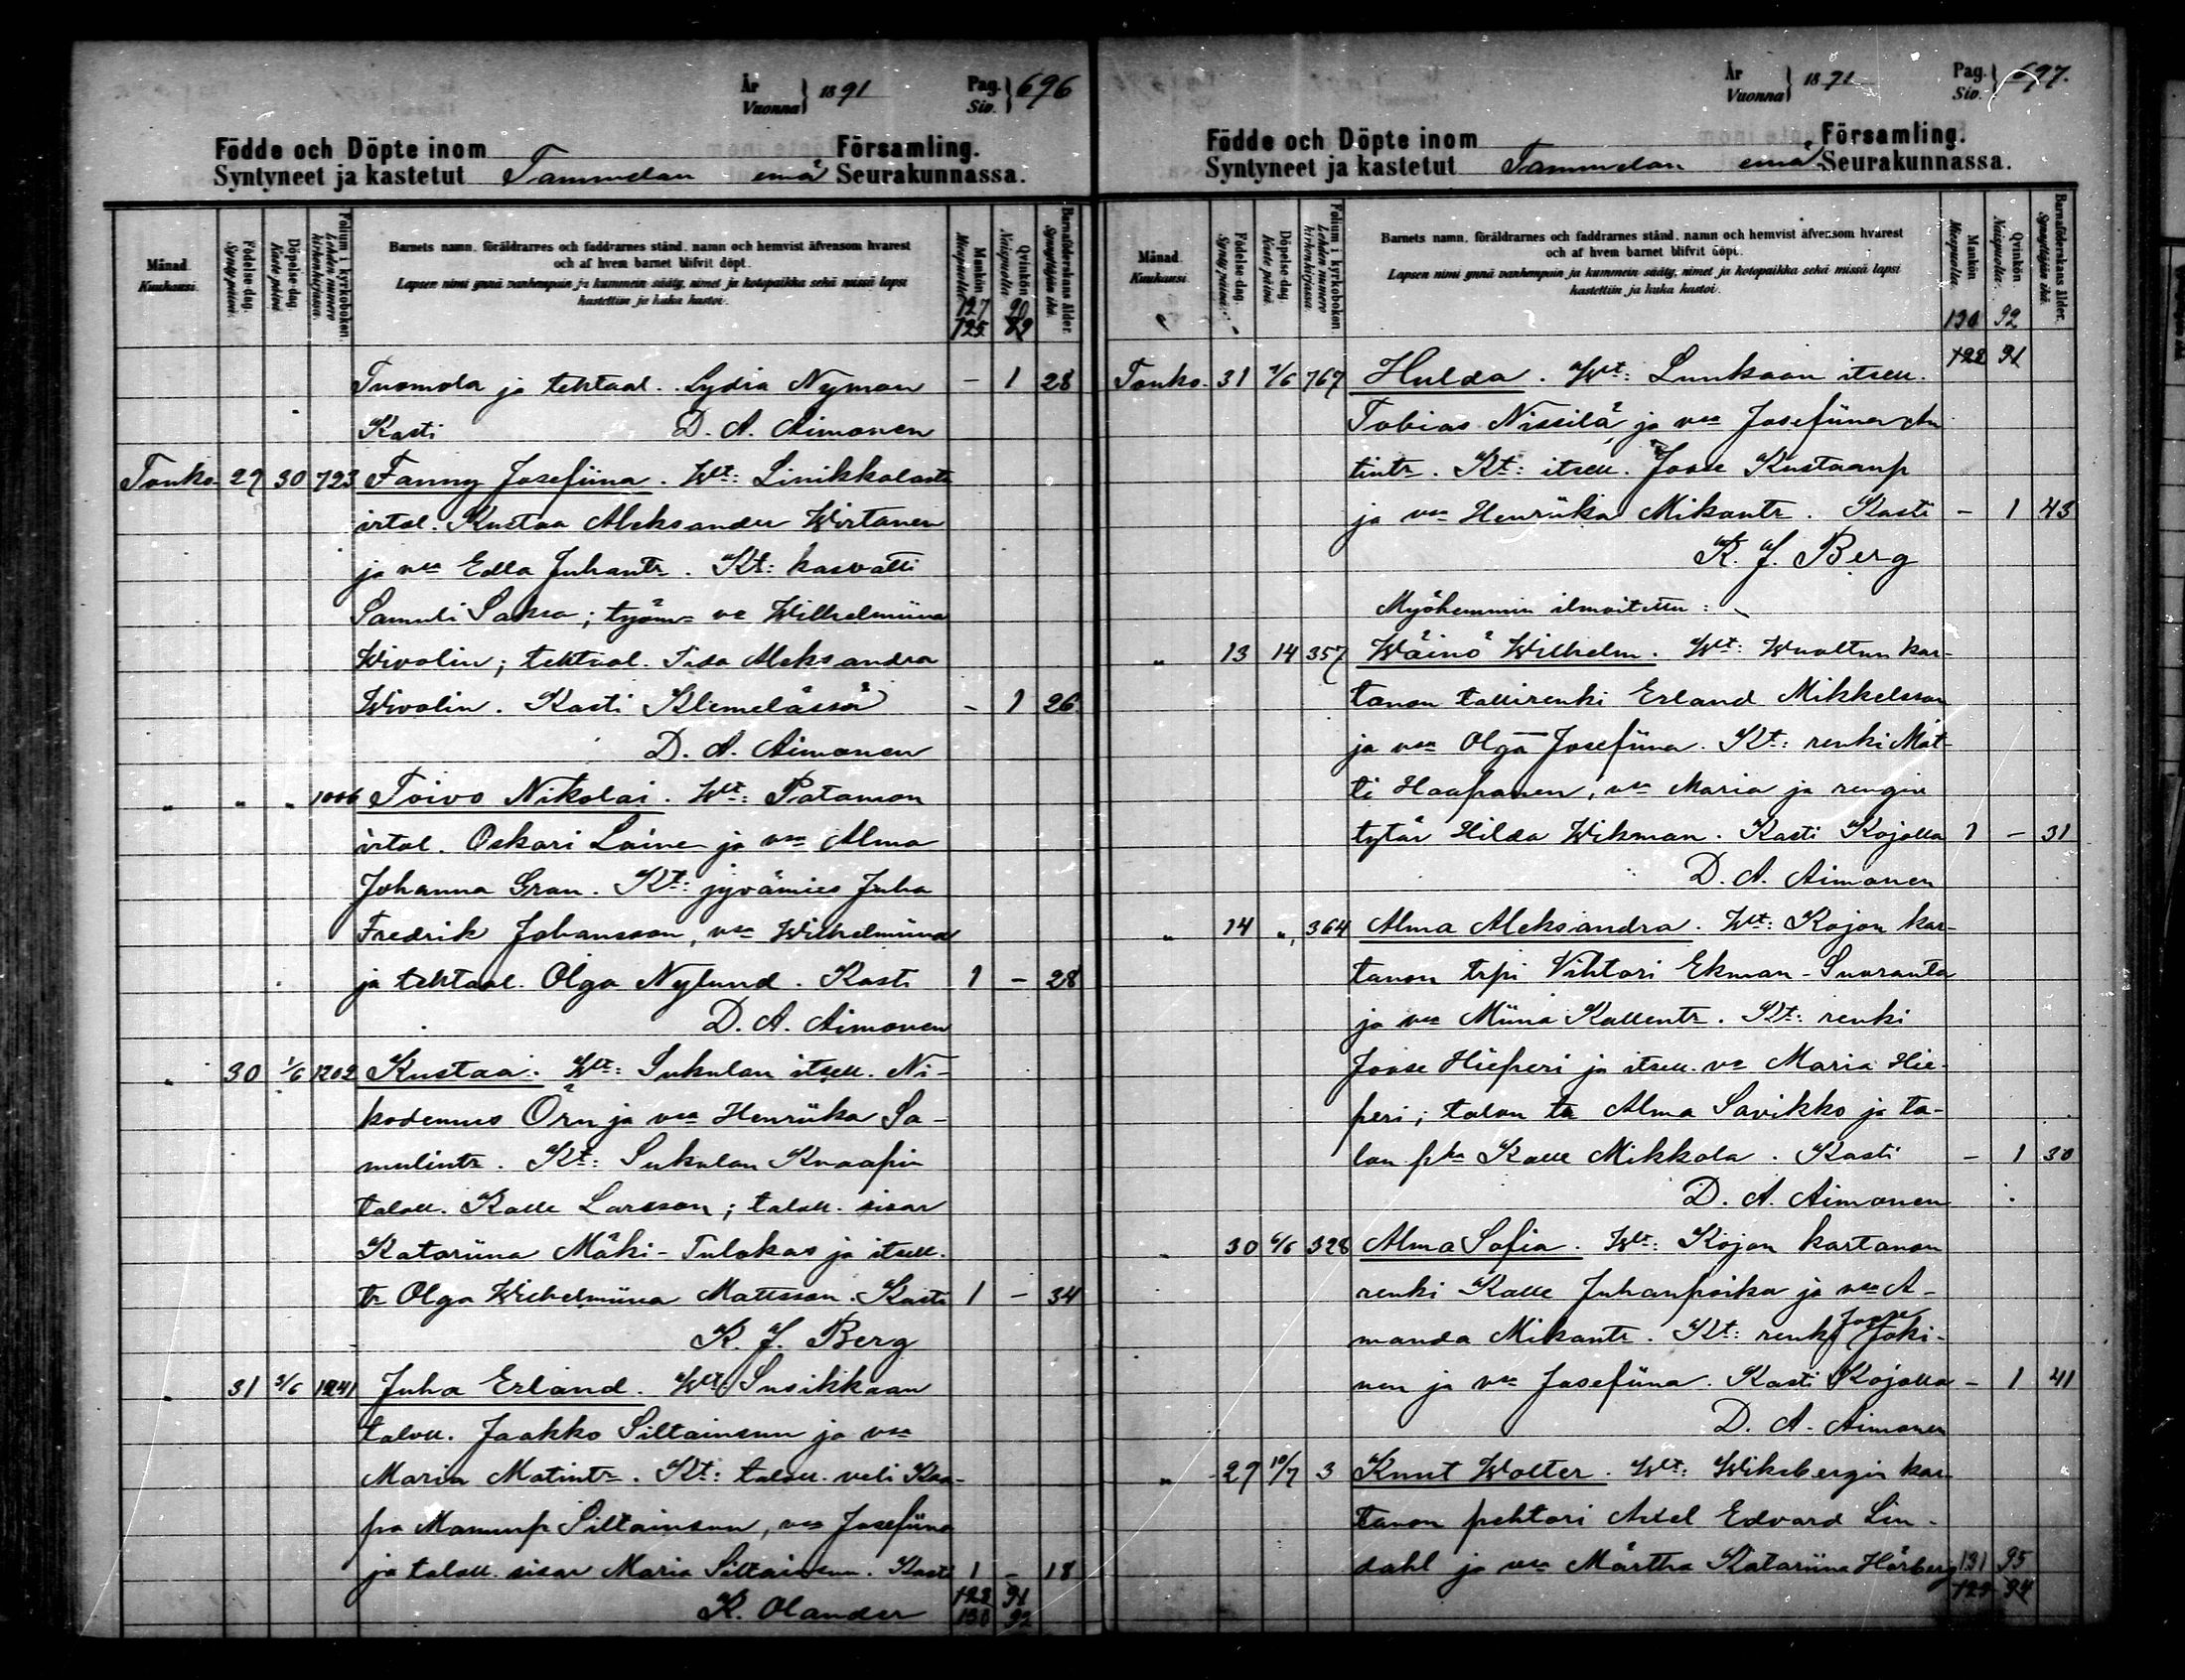 År
Vuonna } 1891
Pag.
Siv. } 696
Födde och Döpte inom Församling.
Syntyneet ja kastetut Tammelan emä Seurakunnassa.
Månad. Kuukausi.
Födelse dag. Synty päivä.
Döpelse dag. Kaste päivä
Folium i kyrkoboken. Lehden numero kirkonkirjassa.
Barnets namn, föräldrarnes och faddrarnes stånd, namn och hemvist äfvensom hvarest
och af hvem barnet blifvit döpt.
Lapsen nimi ynnä vanhempain ja kummein sääty, nimet ja kotopaikka sekä missä lapsi
kastettiin ja kuka kastoi.
Mankön Miespuolia. 127 125
Qvinkön Naispuolia 90 89
Barnaföderskans ålder. Synnyttäjän ikä.
Tuomola ja tehtaal. Lydia Nyman – 1 28
Kasti D. A. Aimonen
Touko. 27 30 723 Fanny Josefiina. Wt: Linikkalasta
irtol. Kustaa Aleksander Wirtanen
ja vsa Edla Juhantr. Kt: kasvatti
Samuli Saksa; työm= vo Wilhelmiina
Wivolin; tehtaal. Iida Aleksandra
Wivolin. Kasti Klemelässä – 1 26
D. A. Aimonen
" " " 1006 Toivo Nikolai. Wt: Patamon
irtol. Oskari Laine ja vsa Alma
Johanna Gran. Kt: jyvämies Juha
Fredrik Johansson, vsa Wilhelmiina
ja tehtaal. Olga Nylund. Kasti 1 – 28
D. A. Aimonen
" 30 1/6 1202 Kustaa. Wt: Sukulan itsell. Ni-
kodemus Örn ja vsa Henriika Sa-
mulintr. Kt: Sukulan Knaapin
taloll. Kalle Larsson; taloll. sisar
Katariina Mäki-Tulokas ja itsell.
tr Olga Wilhelmiina Mattsson. Kasti 1 – 34
K. J. Berg
" 31 5/6 1241 Juha Erland. Wt: Susikkaan
taloll. Jaakko Siltainsuu ja vsa
Maria Matintr. Kt: taloll. veli Kaa-
po Manunp Siltainsuu, vsa Josefiina
ja taloll. sisar Maria Siltainsuu. Kasti 1 – 18
K. Olander 128 91
130 92
År
Vuonna } 1891
Pag.
Siv. } 697.
Födde och Döpte inom Församling.
Syntyneet ja kastetut Tammelan emä Seurakunnassa.
Månad. Kuukausi.
Födelse dag. Synty päivä.
Döpelse dag. Kaste päivä.
Folium i kyrkoboken. Lehden numero kirkonkirjassa.
Barnets namn, föräldrarnes och faddrarnes stånd, namn och hemvist äfvensom hvarest
och af hvem barnet blifvit döpt.
Lapsen nimi ynnä vanhempain ja kummein sääty, nimet ja kotopaikka sekä missä lapsi
kastettiin ja kuka kastoi.
Mankön Miespuolia. 130 128
Qvinkön Naispuolia. 92 91
Barnaföderskans ålder. Synnyttäjän ikä.
Touko. 31 7/6 767 Hulda. Wt: Lunkaan itsell.
Tobias Nissilä ja vsa Josefiina An
tintr. Kt: itsell. Joose Kustaanp
ja vsa Henriika Mikantr. Kasti – 1 43
K. J. Berg
Myöhemmin ilmoitettu:
" 13 14 357 Wäinö Wilhelm. Wt: Wuoltun kar-
tanon tallirenki Erland Mikkelsson
ja vsa Olga Josefiina. Kt: renki Mat-
ti Haapanen, vsa Maria ja rengin
tytär Hilda Wikman. Kasti Kojolla 1 – 31
D. A. Aimonen
" 14 " 364 Alma Aleksandra. Wt: Kojon kar-
tanon trpi Vihtori Ekman-Suoranta
ja vsa Miina Kallentr. Kt: renki
Joose Hieperi ja itsell. va Maria Hie-
peri; talon tr Alma Savikko ja ta-
lon pka Kalle Mikkola. Kasti – 1 30
D. A. Aimonen
" 30 6/6 328 Alma Sofia. Wt: Kojon kartanon
renki Kalle Juhanpoika ja vsa A-
manda Mikantr. Kt: renki Joose Joki-
nen ja vsa Josefiina. Kasti Kojolla – 1 41
D. A. Aimonen
" 27 10/7 3 Knut Wolter. Wt: Wiksbergin kar-
tanon pehtori Axel Edvard Lin-
dahl ja vsa Märtha Katariina Hörberg 131 95
129 94